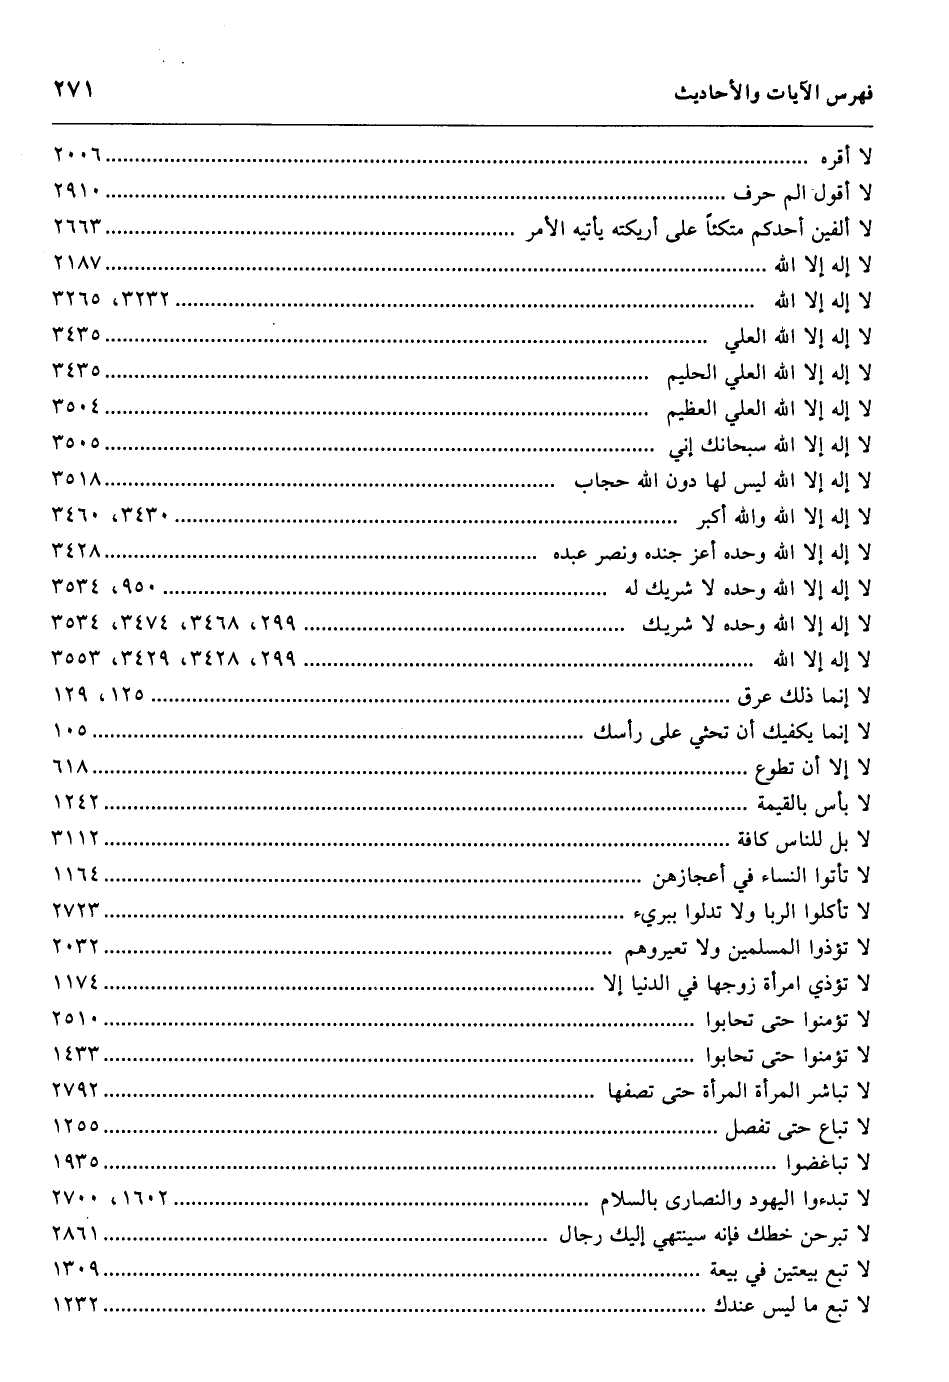 فهرس الآيات والأحاديث ٢٧١
لا أقره ٢٠٠٦
لا أقول الم حرف ٢٩١٠
لا ألفين أحدكم متكئاً على أريكته يأتيه الأمر ٢٦٦٣
لا إله إلا الله ٢١٨٧
لا إله إلا الله ٣٢٣٢، ٣٢٦٥
لا إله إلا الله العلي ٣٤٣٥
لا إله إلا الله العلي الحليم ٣٤٣٥
لا إله إلا الله العلي العظيم ٣٥٠٤
لا إله إلا الله سبحانك إني ٣٥٠٥
لا إله إلا الله ليس لها دون الله حجاب ٣٥١٨
لا إله إلا الله والله أكبر ٣٤٣٠، ٣٤٦٠
لا إله إلا الله وحده أعز جنده ونصر عبده ٣٤٢٨
لا إله إلا الله وحده لا شريك له ٩٥٠، ٣٥٣٤
لا إله إلا الله وحده لا شريك ٢٩٩، ٣٤٦٨، ٣٤٧٤، ٣٥٣٤
لا إله إلا الله ٢٩٩، ٣٤٢٨، ٣٤٢٩، ٣٥٥٣
لا إنما ذلك عرق ١٢٥، ١٢٩
لا إنما يكفيك أن تحثي على رأسك ١٠٥
لا إلا أن تطوع ٦١٨
لا بأس بالقيمة ١٢٤٢
لا بل للناس كافة ٣١١٢
لا تأتوا النساء في أعجازهن ١١٦٤
لا تأكلوا الربا ولا تدلوا ببريء ٢٧٢٣
لا تؤذوا المسلمين ولا تعيروهم ٢٠٣٢
لا تؤذي امرأة زوجها في الدنيا إلا ١١٧٤
لا تؤمنوا حتى تحابوا ٢٥١٠
لا تؤمنوا حتى تحابوا ١٤٣٣
لا تباشر المرأة المرأة حتى تصفها ٢٧٩٢
لا تباع حتى تفصل ١٢٥٥
لا تباغضوا ١٩٣٥
لا تبدءوا اليهود والنصارى بالسلام ١٦٠٢، ٢٧٠٠
لا تبرحن خطك فإنه سينتهي إليك رجال ٢٨٦١
لا تبع بيعتين في بيعة ١٣٠٩
لا تبع ما ليس عندك ١٢٣٢